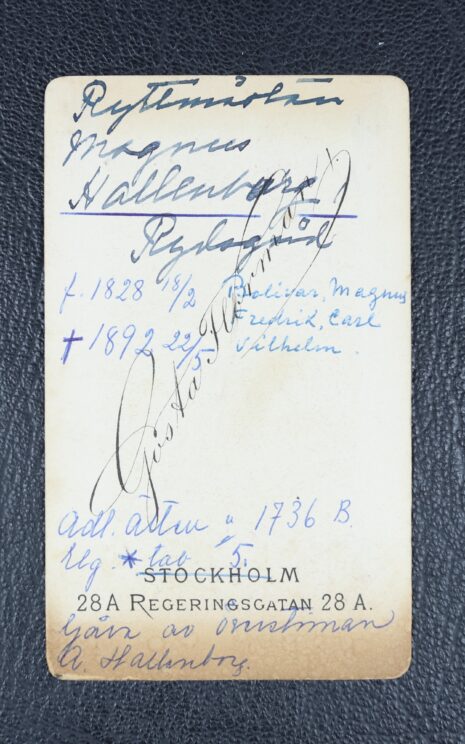 Ryttmästaren
Magnus
Hallenborg
Rydsgård
f. 1828 18/2 Bolivar, Magnus
Fredrik, Carl
† 1892 22/5 Vilhelm.
Gösta Florman
Adl. ätten n 1736 B.
Elg. * tab 5.
STOCKHOLM
28A REGERINGSGATAN 28 A.
Gåva av
A. Hallenborg.